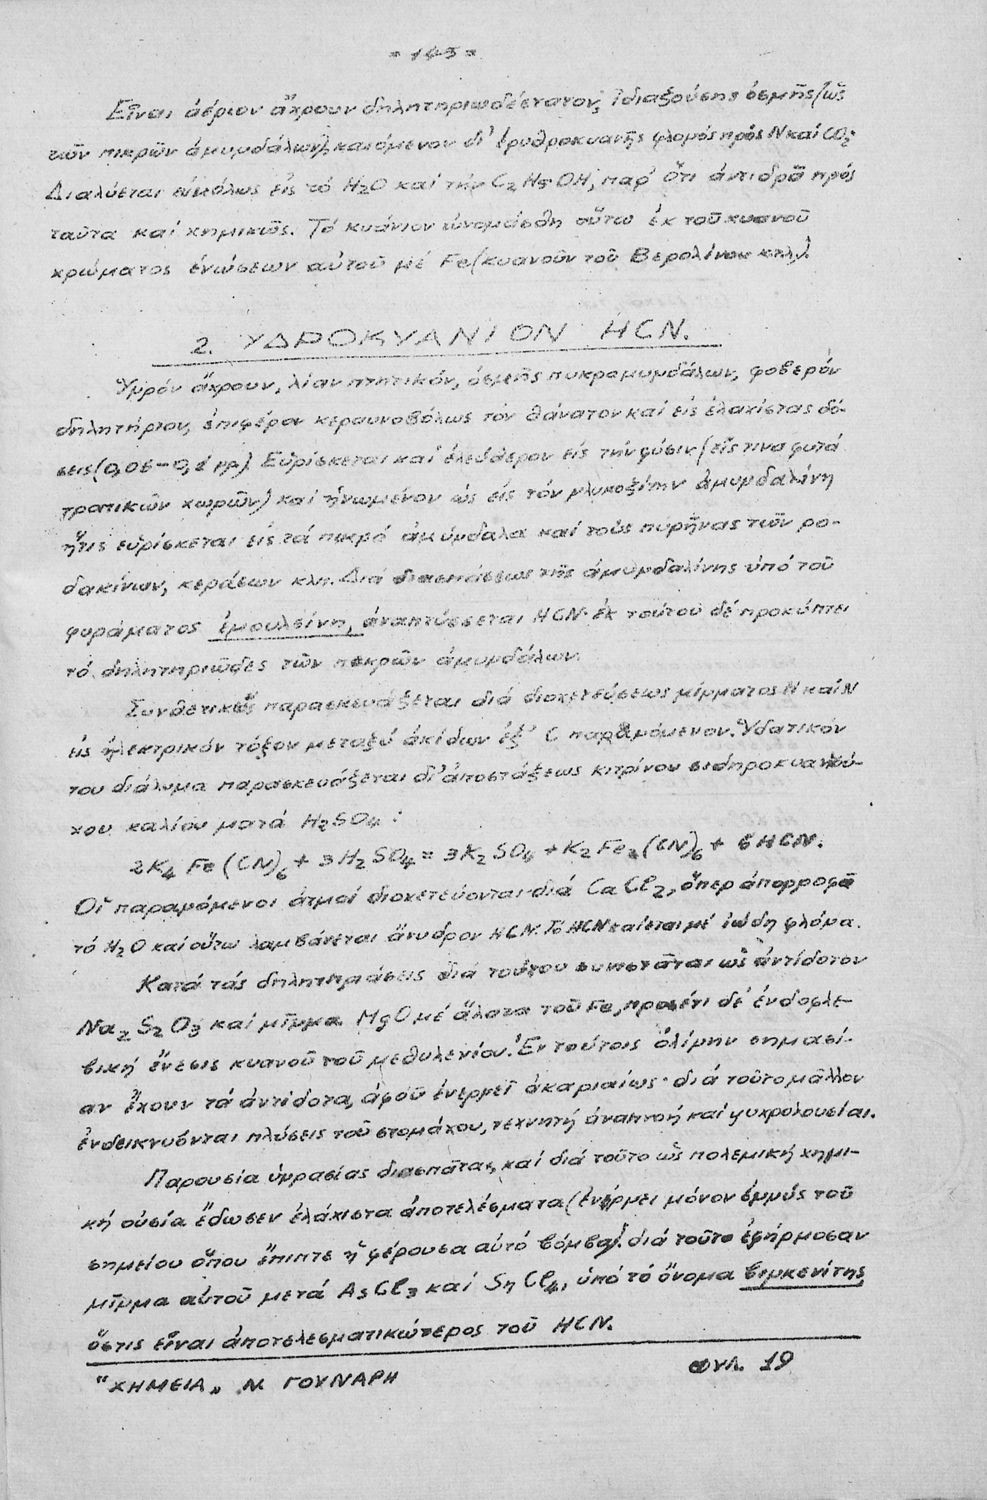 = 145 =
Εἶναι ἀέριον ἄχρουν δηλητηριωδέστατον, ἰδιαζούσης ὀσμῆς (ὡς
τῶν πικρῶν ἀμυγδάλων), καιόμενον δι' ἐρυθροκυανῆς φλογός πρός N καί CO₂.
Διαλύεται εὐκόλως εἰς τό H₂O καί τήν C₂H₅OH, παρ' ὅτι ἀντιδρᾶ πρός
ταῦτα καί χημικῶς. Τό κυάνιον ὠνομάσθη οὕτω ἐκ τοῦ κυανοῦ
χρώματος ἑνώσεων αὐτοῦ μέ Fe (κυανοῦν τοῦ Βερολίνου κτλ.).
2. ΥΔΡΟΚΥΑΝΙΟΝ HCN.
Ὑγρόν ἄχρουν, λίαν πτητικόν, ὀσμῆς πικραμυγδάλων, φοβερόν
δηλητήριον, ἐπιφέρον κεραυνοβόλως τόν θάνατον καί εἰς ἐλαχίστας δό-
σεις (0,05-0,1 γρ). Εὑρίσκεται καί ἐλεύθερον εἰς τήν φύσιν (εἴς τινα φυτά
τροπικῶν χωρῶν) καί ἡνωμένον ὡς εἰς τόν γλυκοζίτην ἀμυγδαλίνη
ἥτις εὑρίσκεται εἰς τά πικρά ἀμύγδαλα καί τούς πυρῆνας τῶν ρο-
δακίνων, κεράσων κλπ. Διά διασπάσεως τῆς ἀμυγδαλίνης ὑπό τοῦ
φυράματος ἐμουλσίνη, ἀναπτύσσεται HCN. ἐκ τούτου δέ προκύπτει
τό δηλητηριῶδες τῶν πικρῶν ἀμυγδάλων.
Συνθετικῶς παρασκευάζεται διά διοχετεύσεως μίγματος N καί N
εἰς ἠλεκτρικόν τόξον μεταξύ ἀκίδων ἐξ' C παραγόμενον. Ὑδατικόν
του διάλυμα παρασκευάζεται δι' ἀποστάξεως κιτρίνου σιδηροκυανιού-
χου καλίου μετά H₂SO₄ :
2K₄Fe(CN)₆ + 3H₂SO₄ = 3K₂SO₄ + K₂Fe₂(CN)₆ + 6HCN.
Οἱ παραγόμενοι ἀτμοί διοχετεύονται διά CaCl₂, ὅπερ ἀπορροφᾶ
τό H₂O καί οὕτω λαμβάνεται ἄνυδρον HCN. Τό HCN καίεται μέ ἰώδη φλόγα.
Κατά τάς δηλητηριάσεις διά τούτου συνιστᾶται ὡς ἀντίδοτον
Na₂S₂O₃ καί μῖγμα MgO μέ ἅλατα τοῦ Fe, προσέτι δέ ἐνδοφλε-
βική ἔνεσις κυανοῦ τοῦ μεθυλενίου. Ἐν τούτοις ὀλίγην σημασί-
αν ἔχουν τά ἀντίδοτα, ἀφοῦ ἐνεργεῖ ἀκαριαίως· διά τοῦτο μᾶλλον
ἐνδείκνυνται πλύσεις τοῦ στομάχου, τεχνητή ἀναπνοή καί ψυχρολουσίαι.
Παρουσία ὑγρασίας διασπᾶται, καί διά τοῦτο ὡς πολεμική χημι-
κή οὐσία ἔδωσεν ἐλάχιστα ἀποτελέσματα (ἐνήργει μόνον ἐγγύς τοῦ
σημείου ὅπου ἔπιπτε ἡ φέρουσα αὐτό βόμβα). διά τοῦτο ἐφήρμοσαν
μῖγμα αὐτοῦ μετά AsCl₃ καί SnCl₄, ὑπό τό ὄνομα βιγκενίτης
ὅστις εἶναι ἀποτελεσματικώτερος τοῦ HCN.
"ΧΗΜΕΙΑ„ Ν. ΓΟΥΝΑΡΗ ΦΥΛ. 19